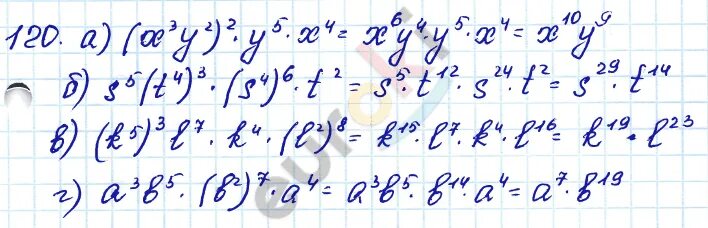 120. а) (x³y²)²·y⁵·x⁴= x⁶y⁴·y⁵·x⁴= x¹⁰y⁹
б) s⁵(t⁴)³·(s⁴)⁶·t²= s⁵·t¹²·s²⁴·t²= s²⁹·t¹⁴
в) (k⁵)³l⁷·k⁴·(l²)⁸= k¹⁵·l⁷·k⁴·l¹⁶= k¹⁹·l²³
г) a³b⁵·(b²)⁷·a⁴= a³b⁵·b¹⁴·a⁴= a⁷·b¹⁹
euroki